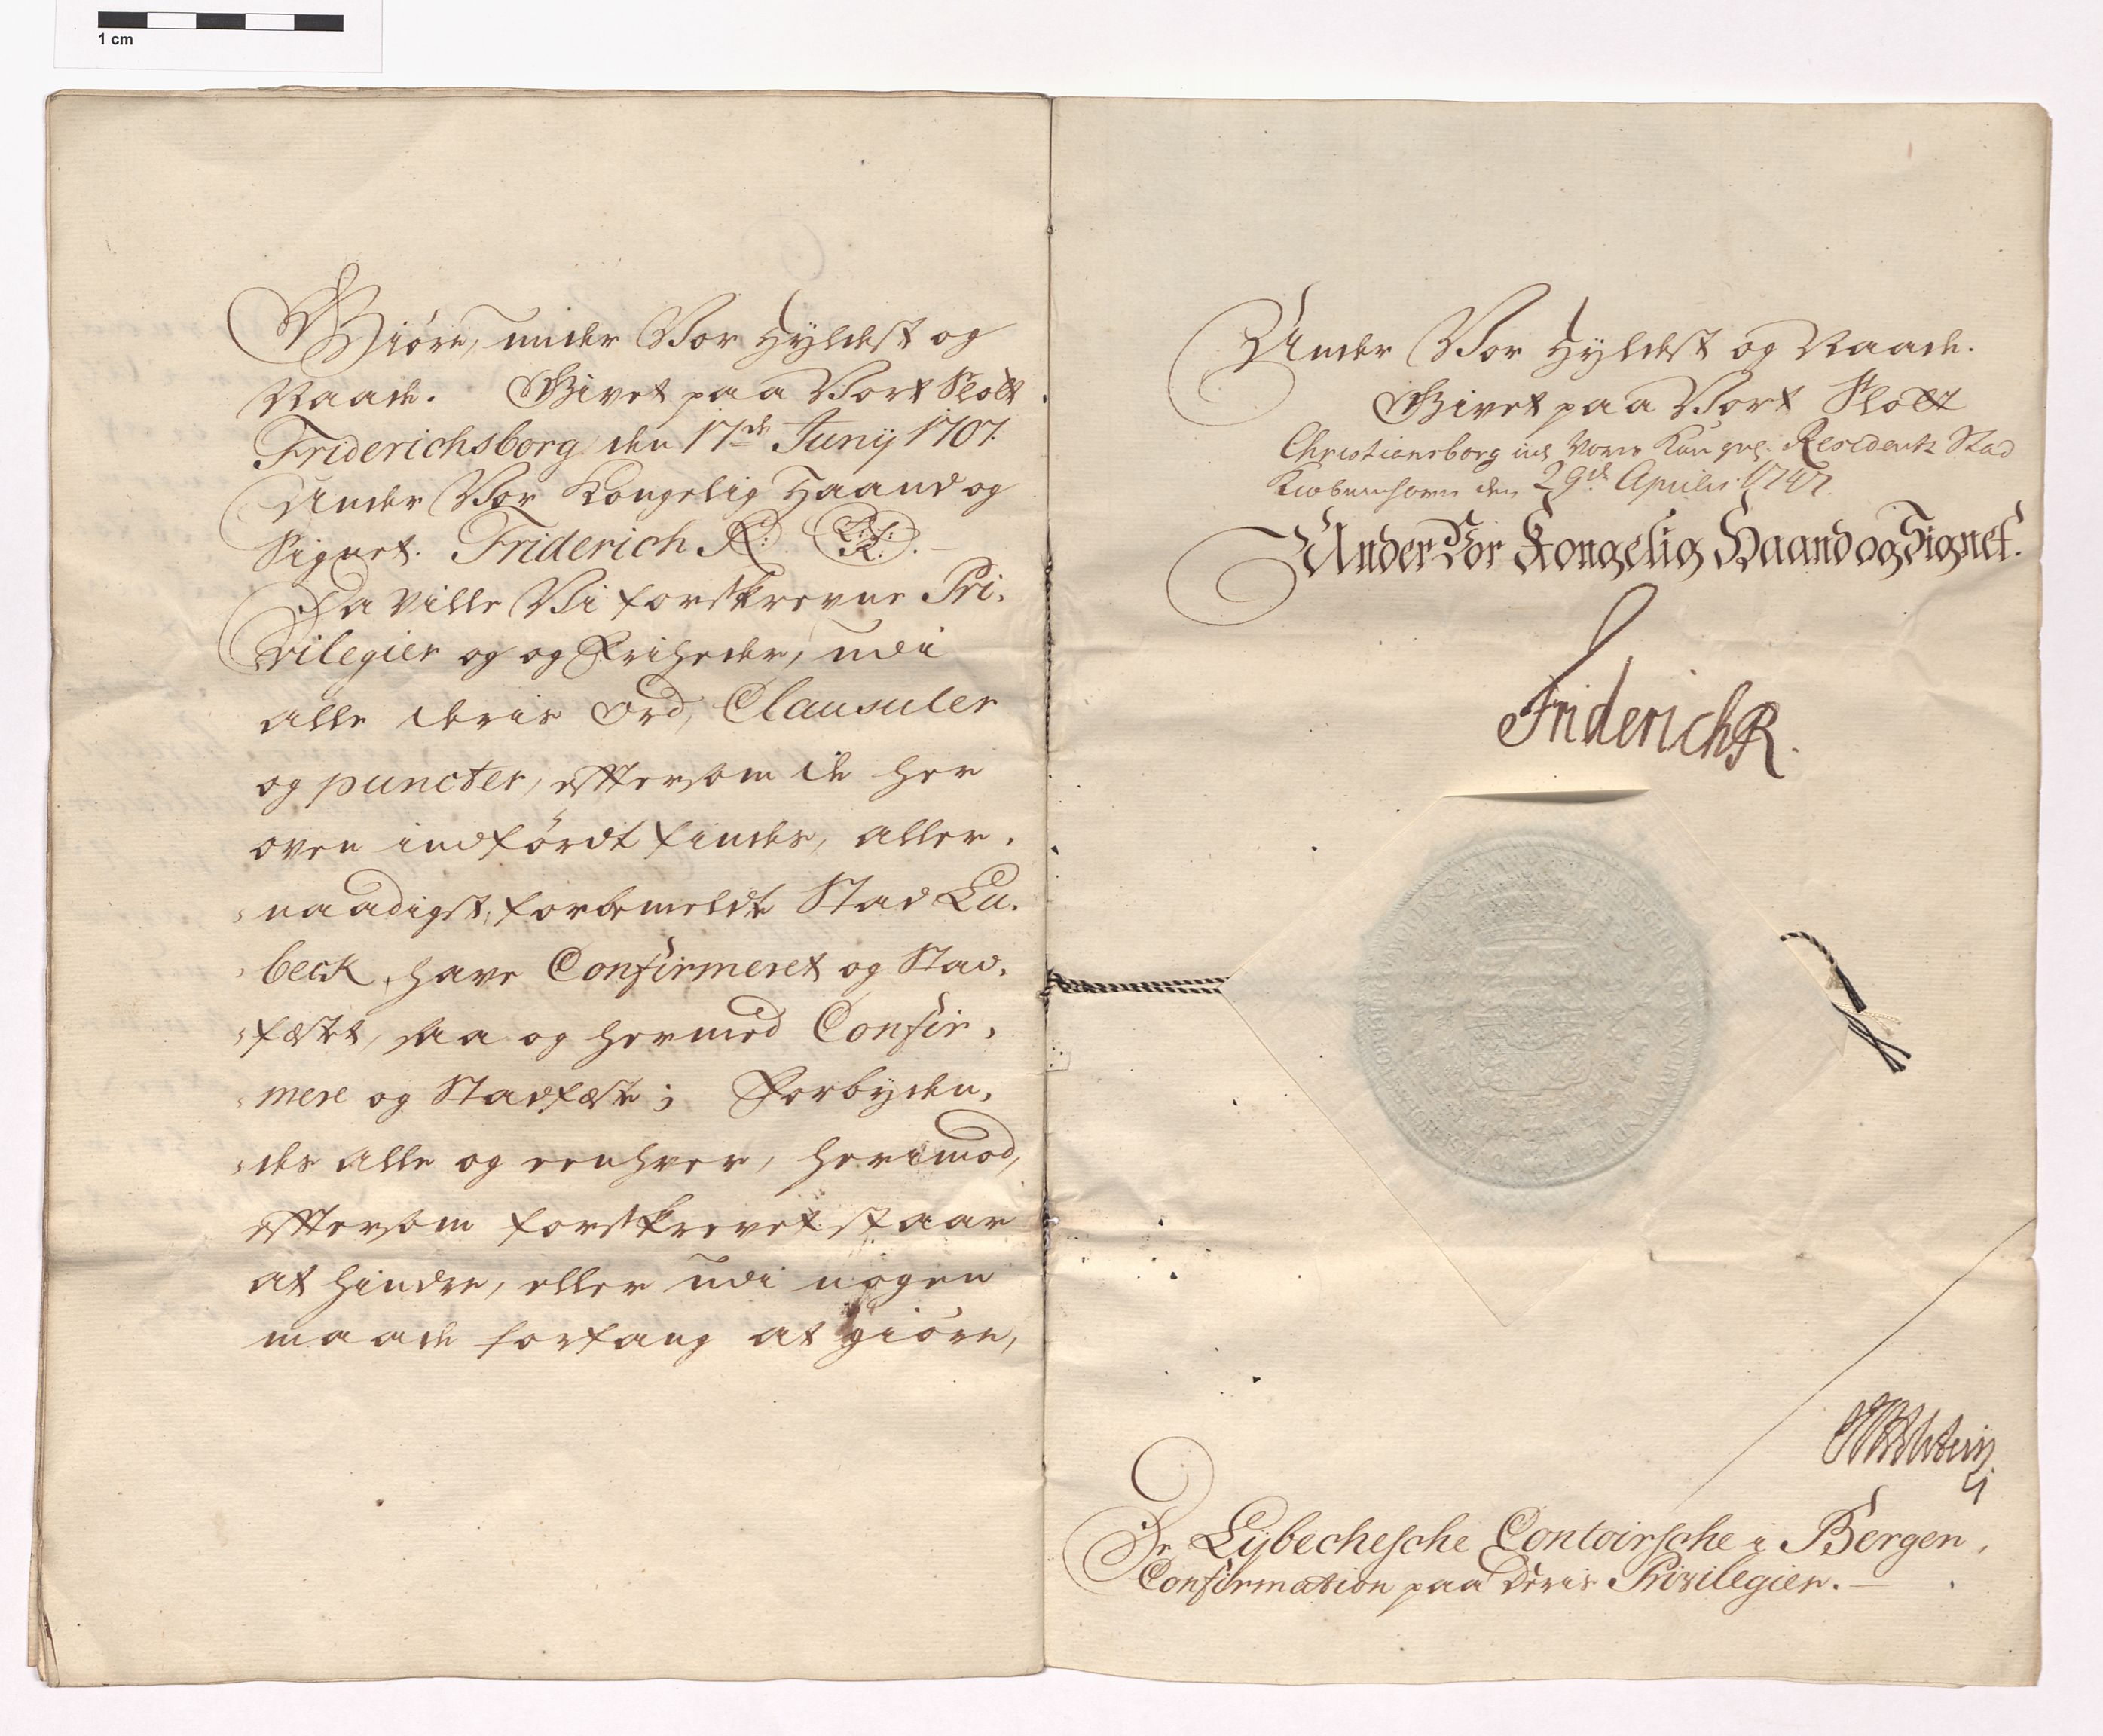 1 cm
Giöre, under Vor Hyldest og
Naade. Givet paa Vort Slott
Friderichsborg den 17de Junij 1707.
Under Vor Kongelig Haand og
Signet. Friderich R: (L:S: R:).
Da ville Vi forskrevne Pri-
vilegier og og Friheder, udi
alle deris Ord, Clausuler
og puncter, efftersom de her
oven indfördt findes, aller-
naadigst, forbemeldte Stad Lu-
beck, have Confirmeret og Stad-
fæstet, saa og hermed Confir-
mere og Stadfæste; Forbyden-
des alle og eenhver, herimod,
efftersom forskrevet staar
at hindre, eller udi nogen
maade forfang at giöre,
Under Vor Hyldest og Naade.
Givet paa Vort Slott
Christiansborg udj Vores Kongel: Residentz Stad
Kiøbenhavn den 29de Aprilis 1747.
Under Vor Kongelig Haand og Signet.
Friderich R.
De Lybechesche Contoirsche i Bergen,
Confirmation paa deris Privilegier.